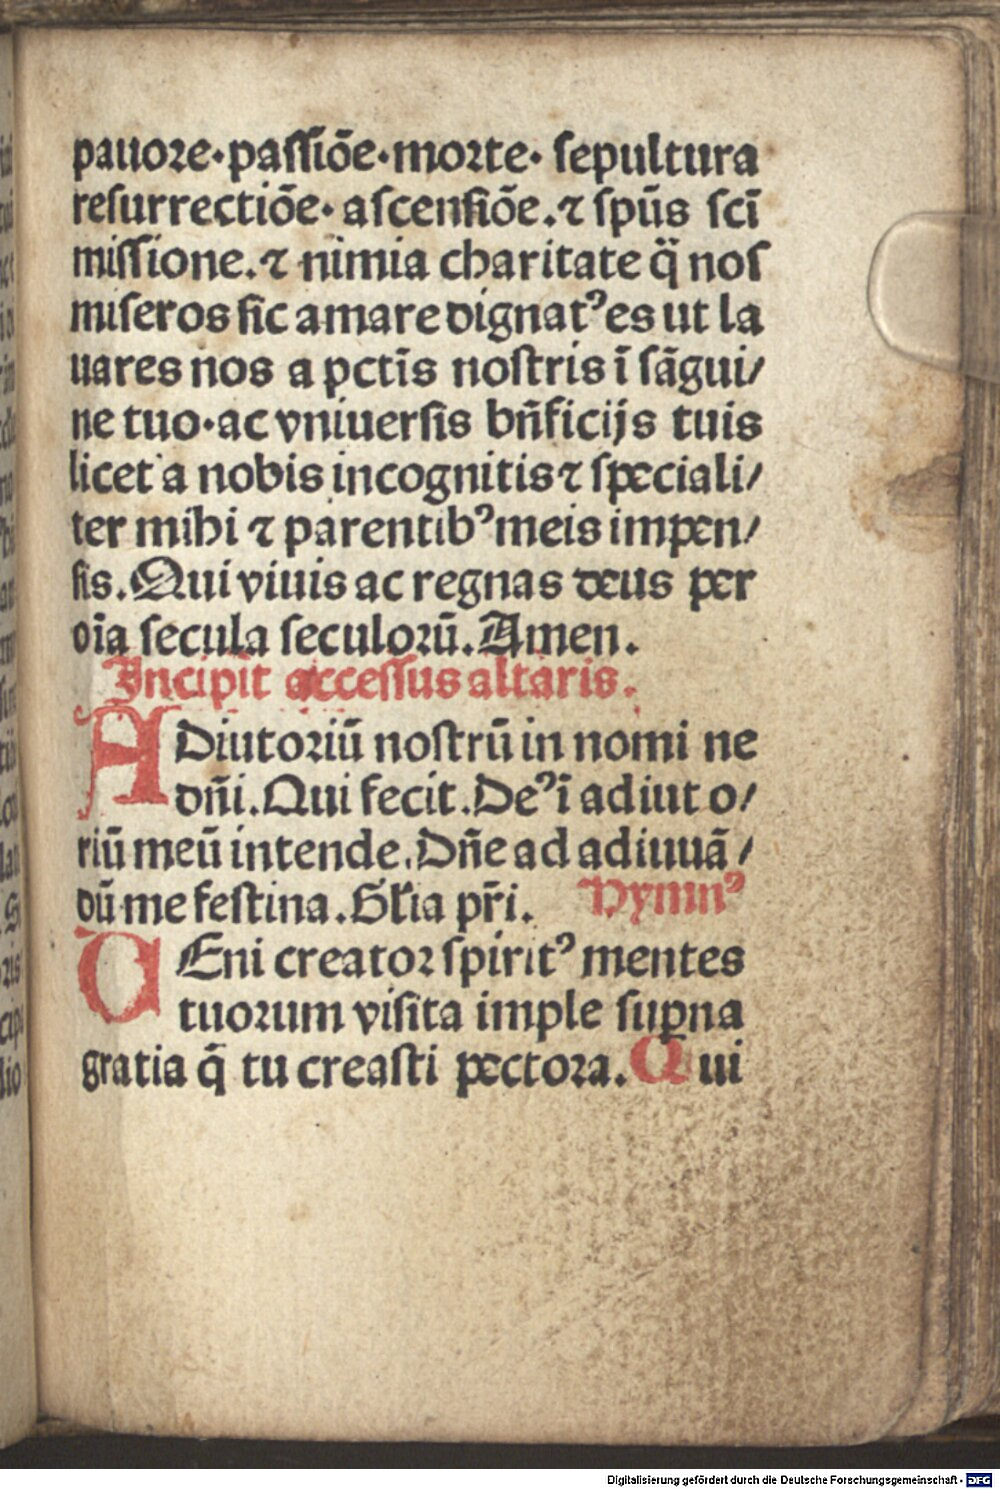 pauore·passiōe·morte· sepultura
resurrectiōe· ascensiōe.⁊ spūs scī
missione.⁊ nimia charitate q̄ nos
miseros sic amare dignatꝰes ut la
uares nos a pctīs nostris ī sāgui/
ne tuo·ac vniuersis bn̄ficijs tuis
licet a nobis incognitis⁊ speciali/
ter mihi ⁊ parentibꝰmeis impen/
sis.Qui viuis ac regnas deus per
oīa secula seculorū.Amen.
Incipit accessus altaris.
ADiutoriū nostrū in nomi ne
dn̄i.Qui fecit.Deꝰī adiut o/
riū meū intende.Dn̄e ad adiuuā/
dū me festina.Gl̄ia pr̄i. Hymnꝰ
VEni creator spiritꝰ mentes
tuorum visita imple suꝑna
gratia q̄ tu creasti pectora.Qui
Digitalisierung gefördert durch die Deutsche Forschungsgemeinschaft - DFG